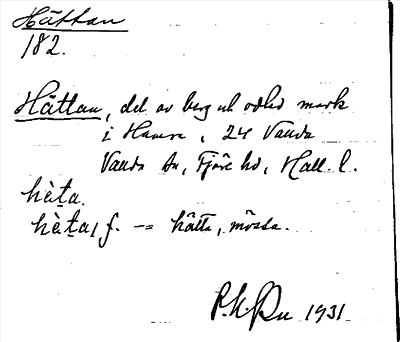 Hättan
182.
Hättan, del av berg och odlad mark
i Hamra, 24 Vanda
Vanda sn, Fjäre hd, Hall. l.
hèt̲a.
hèt̲a, f. -= hätta, mössa.
1931